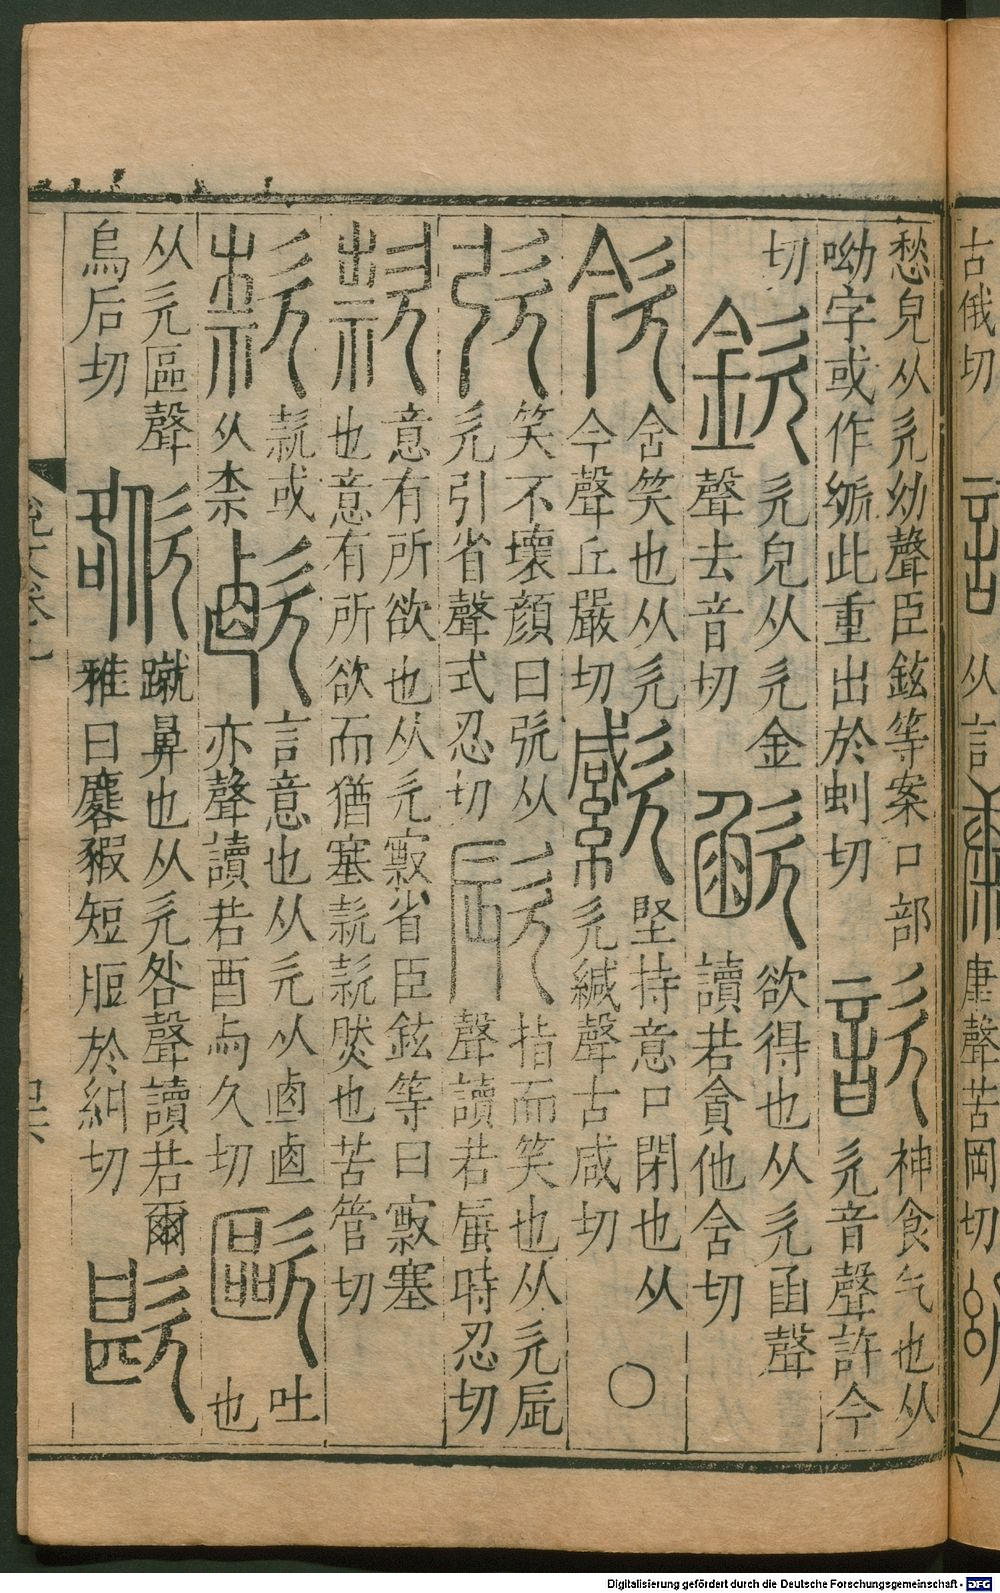 古俄切
从言
康聲苦岡切
愁皃从欠幼聲臣鉉等案口部
呦字或作此重出於虯切
歆
神食气也从
欠音聲許今
切
欽
欠皃从欠金
聲去音切
欲得也从欠函聲
讀若貪他含切
含笑也从欠
今聲丘嚴切
堅持意口閉也从
欠緘聲古咸切
○
弞
笑不壞顏曰弞从
欠引省聲式忍切
指而笑也从欠辰
聲讀若蜃時忍切
款
意有所欲也从欠㱁省臣鉉等曰㱁塞
也意有所欲而猶塞款款然也苦管切
款或
从柰
言意也从欠从鹵鹵
亦聲讀若酉與久切
歐
吐
也
从欠區聲
烏后切
蹴鼻也从欠咎聲讀若爾
雅曰麔豭短脰於糾切
歇
說文卷十
Digitalisierung gefördert durch die Deutsche Forschungsgemeinschaft - DFG